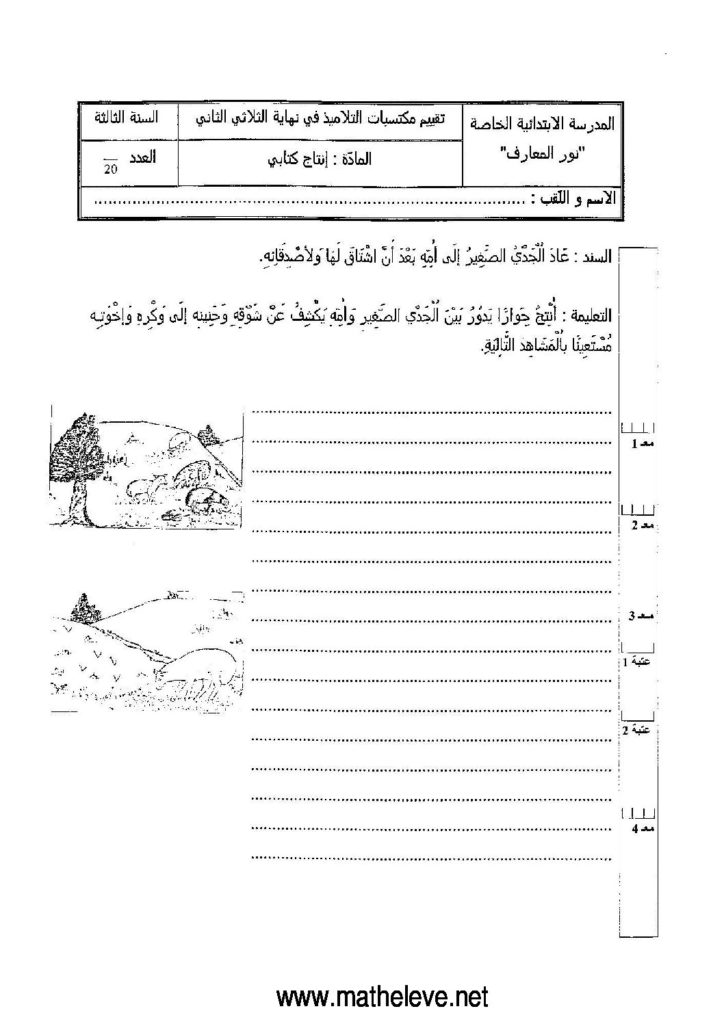 المدرسة الابتدائية الخاصة
"نور المعارف"
تقييم مكتسبات التلاميذ في نهاية الثلاثي الثاني
السنة الثالثة
المادّة : إنتاج كتابي
العدد
20
الاسم و اللّقب : ........................................................................................
السند : عَادَ الْجَدْيُ الصَّغِيرُ إِلَى أُمِّهِ بَعْدَ أَنَّ اشْتَاقَ لَهَا وَلأصْدِقَائِهِ.
التعليمة : أُنْتِجُ حِوَارًا يَدُورُ بَيْنَ الْجَدْيِ الصَّغِيرِ وَأُمِّهِ يَكْشِفُ عَنْ شَوْقِهِ وَحَنِينِهِ إِلَى وَكْرِهِ وَإِخْوَتِهِ
مُسْتَعِينًا بِالْمَشَاهِدِ التَّالِيَةِ.
معـ 1
معـ 2
معـ 3
عتبة 1
عتبة 2
معـ 4
www.matheleve.net